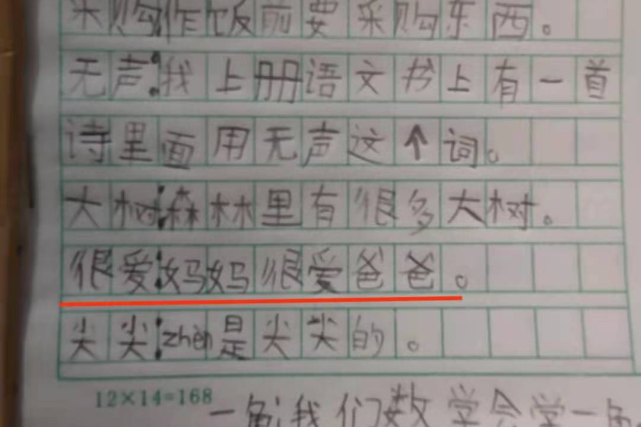 采购:作饭前要采购东西。
无声:我上册语文书上有一首
诗里面用无声这个词。
大树:森林里有很多大树。
很爱:妈妈很爱爸爸。
尖尖:zhèn是尖尖的。
12×14=168
一角:我们数学会学一角